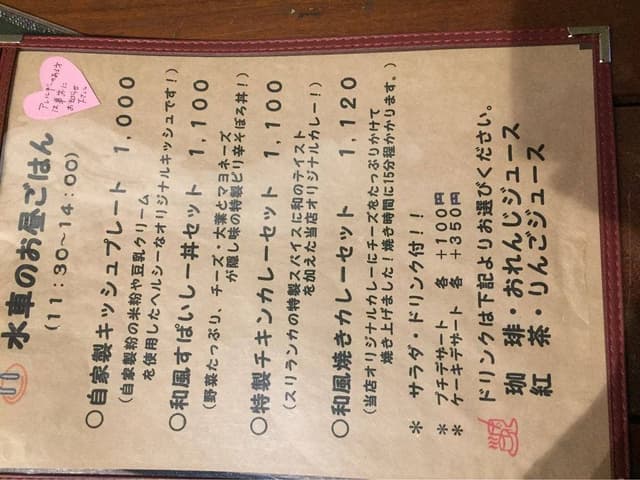 水車のお昼ごはん
(11:30~14:00)
アレルギーのある方は事前にお知らせ下さい
○自家製キッシュプレート 1,000
(自家製粉の米粉や豆乳クリーム
を使用したヘルシーなオリジナルキッシュです!)
○和風すぱいしー丼セット 1,100
(野菜たっぷり、チーズ・大葉とマヨネーズ
が隠し味の特製ピリ辛そぼろ丼!)
○特製チキンカレーセット 1,100
(スリランカの特製スパイスに和のテイスト
を加えた当店オリジナルカレー!)
○和風焼きカレーセット 1,120
(当店オリジナルカレーにチーズをたっぷりかけて
焼き上げました!焼き時間に15分程かかります。)
* サラダ・ドリンク付!!
* プチデザート 各 +100円
* ケーキデザート 各 +350円
ドリンクは下記よりお選びください。
珈 琲・おれんじジュース
紅 茶・りんごジュース